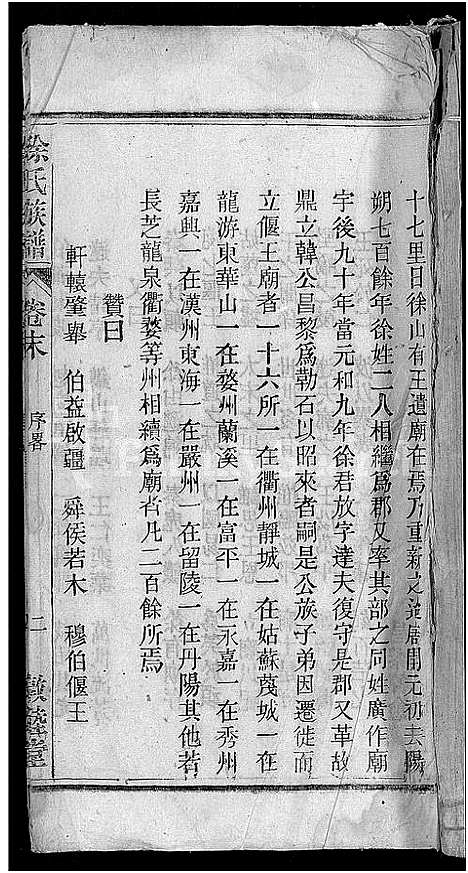 十七里曰徐山有王遺廟在焉乃重新之並廣開元初去陽
朔七百餘年徐姓二人相繼爲郡又率其部之同姓廣作廟
宇後九十年當元和九年徐君放字達夫復守是郡又革故
鼎立韓公昌黎爲勒石以昭來者嗣是公族子弟因遷徙而
立偃王廟者一十六所一在衢州靜城一在姑蘇茂城一在
龍游東華山一在婺州蘭溪一在富平一在永嘉一在秀州
嘉興一在漢州東海一在嚴州一在留陵一在丹陽其他若
長芝龍泉衢婺等州相續爲廟者凡二百餘所焉
贊曰
軒轅肇舉 伯益啟疆 舜侯若木 穆伯偃王
徐氏族譜 卷末 序畧 二